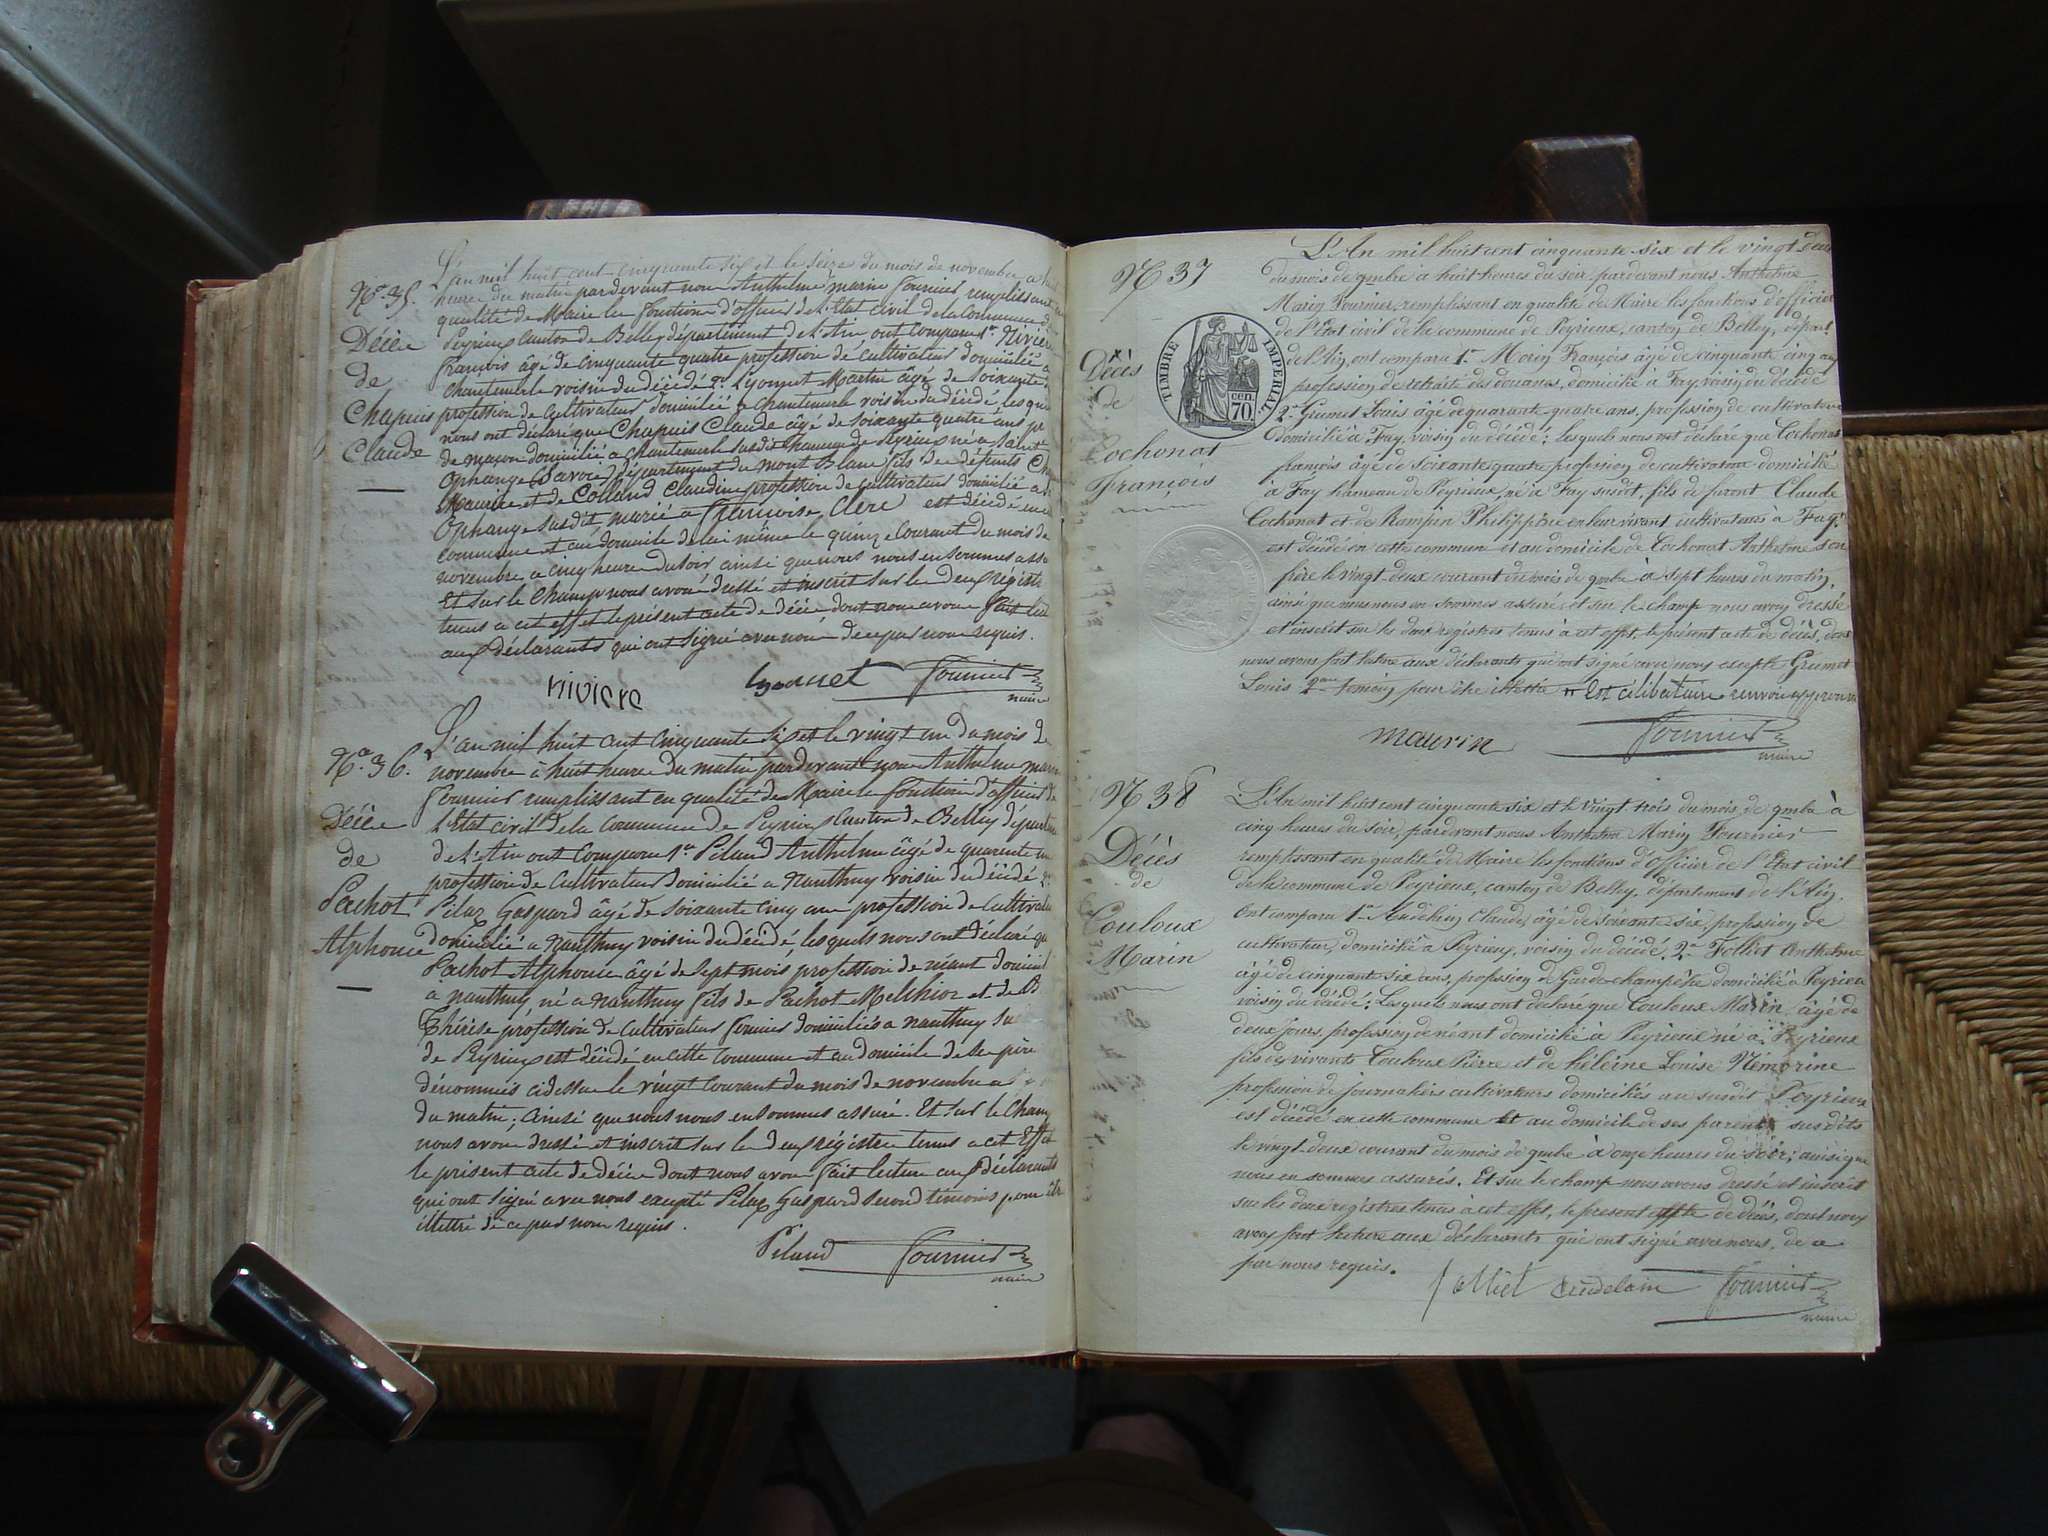 L'an mil huit cent cinquante six et le seize du mois de novembre a huit
heure du matin pardevant nous Anthelme marin Fournier remplissant
qualité de Maire les fonctions d'officier de l'Etat civil de la Commune de
Peyrieu Canton de Belley département de l'Ain, ont comparu 1er Riviere
françois âgé de cinquante quatre profession de cultivateur domicilié a
Chantemerle voisin du décédé 2e Lyonnet Martin âgé de soixante
profession de cultivateur domicilié a chantemerle voisin du décédé lesquels
nous ont déclaré que Chapuis Claude âgé de soixante quatre ans pr
de maçon domicilié a chantemerle susdit hameau de Peyrieu né a Saint
Ophange (Savoie) département du mont Blanc fils de défunts Ch
Maurice et de Colland Claudine profession de cultivateur domicilié a St
Ophange susdit, marié a Françoise Clerc est décédé en cette
commune et au domicile de lui même le quinze courant du mois de
novembre a cinq heure du soir ainsi que nous nous en sommes assu
Et sur le champ nous avons dressé et inscrit sur les deux régistre
tenus a cet effet le présent acte de décès dont nous avons fait lect
aux déclarants qui ont signé avec nous de ce par nous requis.
N° 35.
Décès
de
Chapuis
Claude
riviere Lyonnet Fournier
maire
L'an mil huit cent cinquante six et le vingt un du mois de
novembre à huit heure du matin pardevant nous Anthelme marin
Fournier remplissant en qualité de Maire les fonctions d'officier de
l'Etat civil de la Commune de Peyrieu Canton de Belley départem
de l'Ain ont comparu 1er Piland Anthelme âgé de quarente un
profession de cultivateur domicilié a Nanthuy voisin du décédé 2e
Pilaz Gaspard âgé de soixante cinq ans profession de cultivateur
domicilié a Nanthuy voisin du décédé, lesquels nous ont déclaré que
Pachot Alphonse âgé de sept mois profession de néant domicilié
à nanthuy né a nanthuy fils de Pachot Melchior et de B
Thérèse profession de cultivateur fermier domiciliés a nanthuy su
de Peyrieu est décédé en cette commune et au domicile de ses père
dénommés cidessus le vingt courant du mois de novembre a
du matin; ainsi que nous nous en sommes assuré. Et sur le champ
nous avons dressé et inscrit sur les deux régistre tenus a cet Effet
le présent acte de décès dont nous avons fait lecture aux déclarants
qui ont signé avec nous excepté Pilaz Gaspard second témoins pour être
illettré de ce par nous requis.
N° 36.
Décès
de
Pachot
Alphonse
Piland Fournier
maire
N° 37
Décès
de
Cochonat
François
TIMBRE IMPERIAL
70 cen.
L'An mil huit cent cinquante six et le vingt deux
du mois de 9mbre a huit heures du soir, pardevant nous Anthelme
Marin Fournier, remplissant en qualité de Maire les fonctions d'officier
de l'Etat civil de la commune de Peyrieux, canton de Belley, départ.
de l'Ain, ont comparu 1er Morin François, âgé de cinquante cinq ans
profession de retraité des douanes, domicilié à Fay, voisin du décédé
2e Grumet Louis âgé de quarante quatre ans, profession de cultivateur
domicilié à Fay, voisin du décédé; lesquels nous ont déclaré que Cochonat
françois âgé de soixante quatre profession de cultivateur domicilié
à Fay hameau de Peyrieux, né à Fay susdit, fils de furent Claude
Cochonat et de Rampin Philippine en leur vivant cultivateurs à Fay ″
est décédé en cette commune et au domicile de Cochonat Anthelme son
frère le vingt deux courant du mois de 9mbre à sept heures du matin,
ainsi que nous nous en sommes assuré, et sur le champ nous avons dressé
et inscrit sur les deux registres tenus à cet effet, le présent acte de décès, dont
nous avons fait lecture aux déclarants qui ont signé avec nous excepté Grumet
Louis 2eme témoin pour être illettré ″ Est célibataire renvoi approuvé
maurin Fournier
maire
N° 38
Décès
de
Couloux
Marin
L'An mil huit cent cinquante six et le vingt trois du mois de 9mbre à
cinq heures du soir, pardevant nous Anthelme Marin Fournier
remplissant en qualité de Maire les fonctions d'officier de l'Etat civil
de la commune de Peyrieux, canton de Belley, département de l'Ain,
ont comparu 1er Claude âgé de soixante six, profession de
cultivateur, domicilié à Peyrieux, voisin du décédé, 2e Folliet Anthelme
âgé de cinquante six ans, profession de Garde champêtre domicilié à Peyrieu
voisin du décédé; Lesquels nous ont déclaré que Couloux Marin, âgé de
deux jours, profession de néant domicilié à Peyrieux né à Peyrieux
fils des vivants Couloux Pierre et de héleine Louise Némorine
profession de journaliers cultivateurs domiciliés au susdit Peyrieux
est décédé en cette commune et au domicile de ses parents susdits
le vingt deux courant du mois de 9mbre à onze heures du soir; ainsi que
nous en sommes assurés. Et sur le champ nous avons dressé et inscrit
sur les deux régistres tenus à cet effet, le présent acte de décès, dont nous
avons fait lecture aux déclarants qui ont signé avec nous, de ce
par nous requis.
folliet Fournier
maire